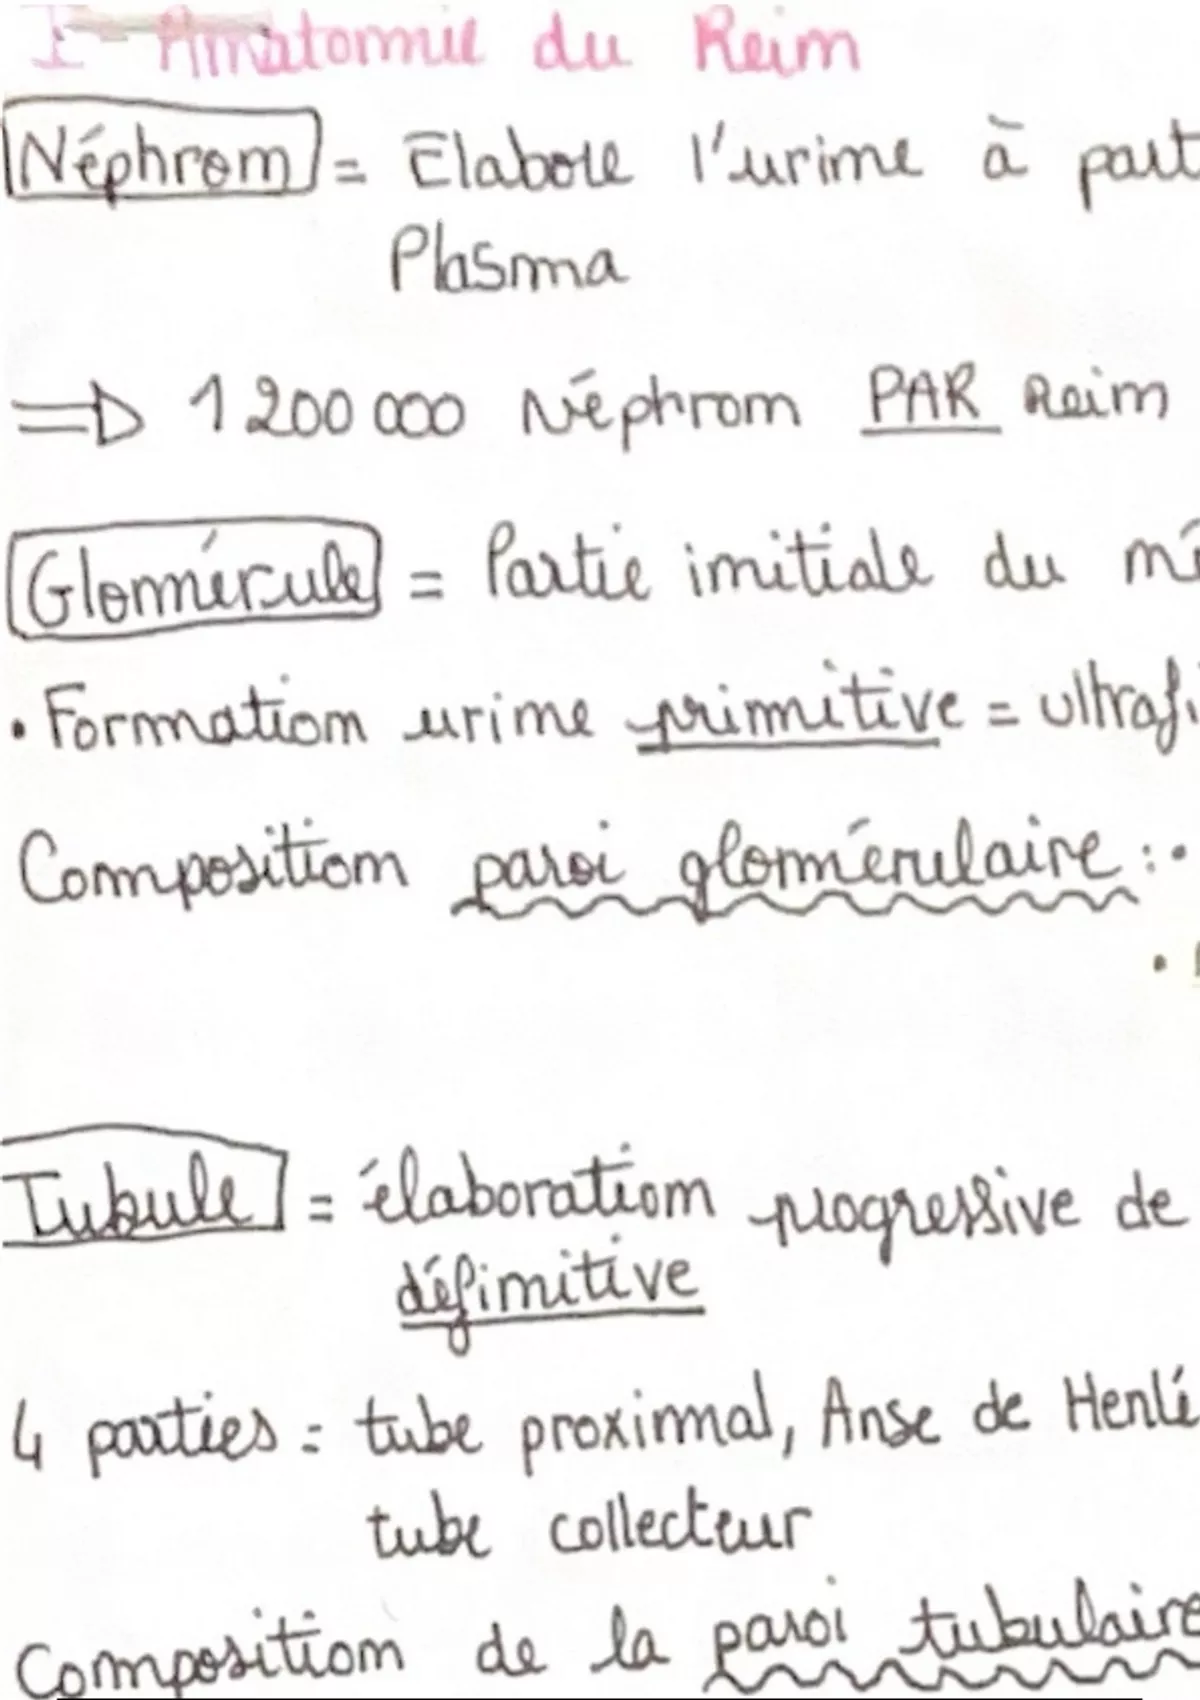 I- Anatomie du Rein
Néphron = Elabore l'urine à part
Plasma
=> 1 200 000 Néphron PAR Rein
Glomérule = Partie initiale du né
• Formation urine primitive = ultraf
Composition paroi glomérulaire : •
•
Tubule = élaboration progressive de
définitive
4 parties = tube proximal, Anse de Henlé
tube collecteur
Composition de la paroi tubulaire